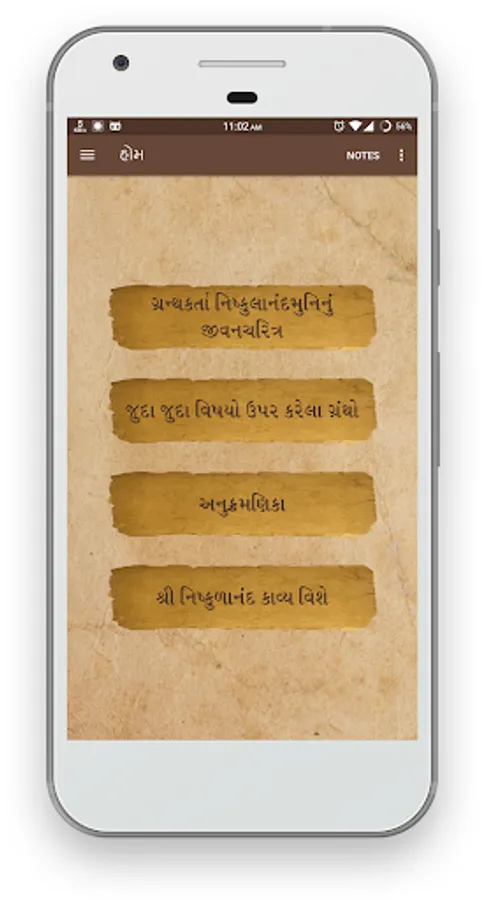 11:02 AM
56%
હોમ
NOTES
ગ્રન્થકર્તા નિષ્કુલાનંદમુનિનું
જીવનચરિત્ર
જુદા જુદા વિષયો ઉપર કરેલા ગ્રંથો
અનુક્રમણિકા
શ્રી નિષ્કુળાનંદ કાવ્ય વિશે